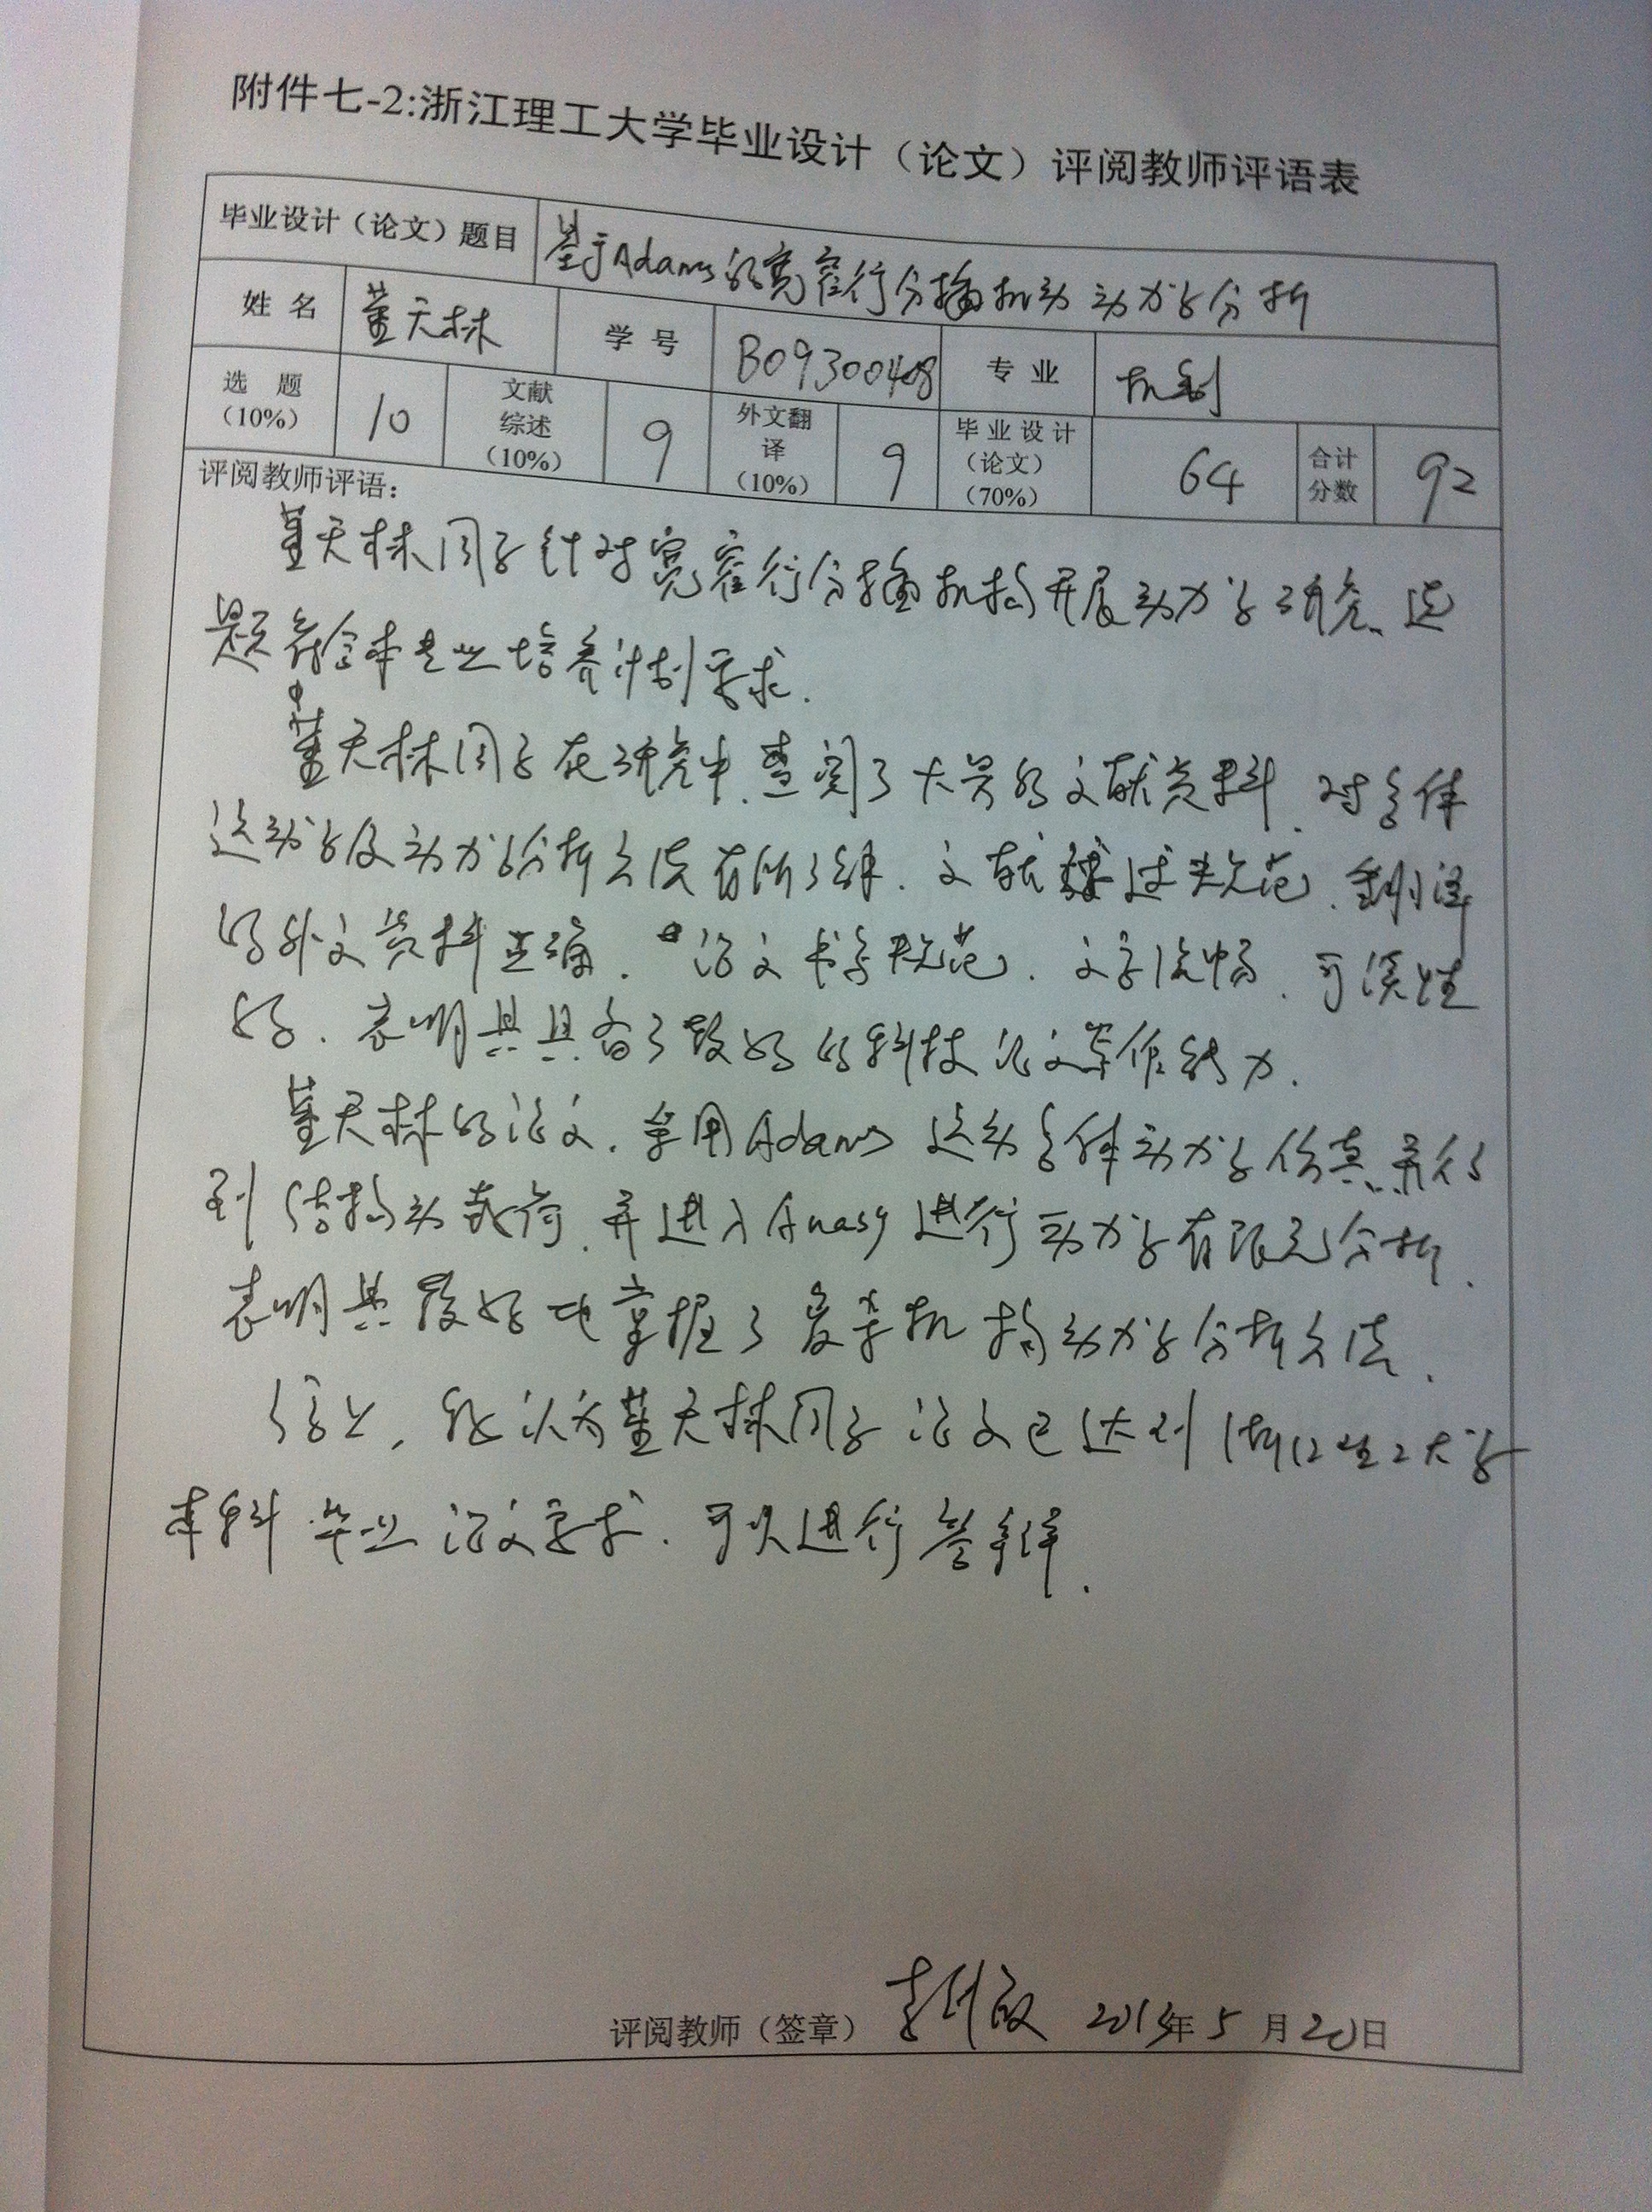 附件七-2:浙江理工大学毕业设计（论文）评阅教师评语表
毕业设计（论文）题目 基于Adams的宽窄行分插机动动力学分析
姓名 董天林 学号 B09300408 专业 机制
选题（10%） 10 文献综述（10%） 9 外文翻译（10%） 9 毕业设计（论文）（70%） 64 合计分数 92
评阅教师评语：
董天林同学针对宽窄行分插机构开展动力学研究、选
题符合本专业培养计划要求.
董天林同学在研究中、查阅了大量的文献资料、对多体
运动学及动力学分析方法有所了解. 文献综述规范、翻译
的外文资料正确. 论文书写规范. 文字流畅、可读性
好. 表明其具备了较好的科技论文写作能力.
董天林的论文、采用Adams 运动多体动力学仿真、并得
到结构动载荷、并进入Anasy进行动力学有限元分析.
表明其较好地掌握了复杂机构动力学分析方法.
综上, 我认为董天林同学论文已达到浙江理工大学
本科毕业论文要求. 可以进行答辩.
评阅教师（签章） 2013年5月20日